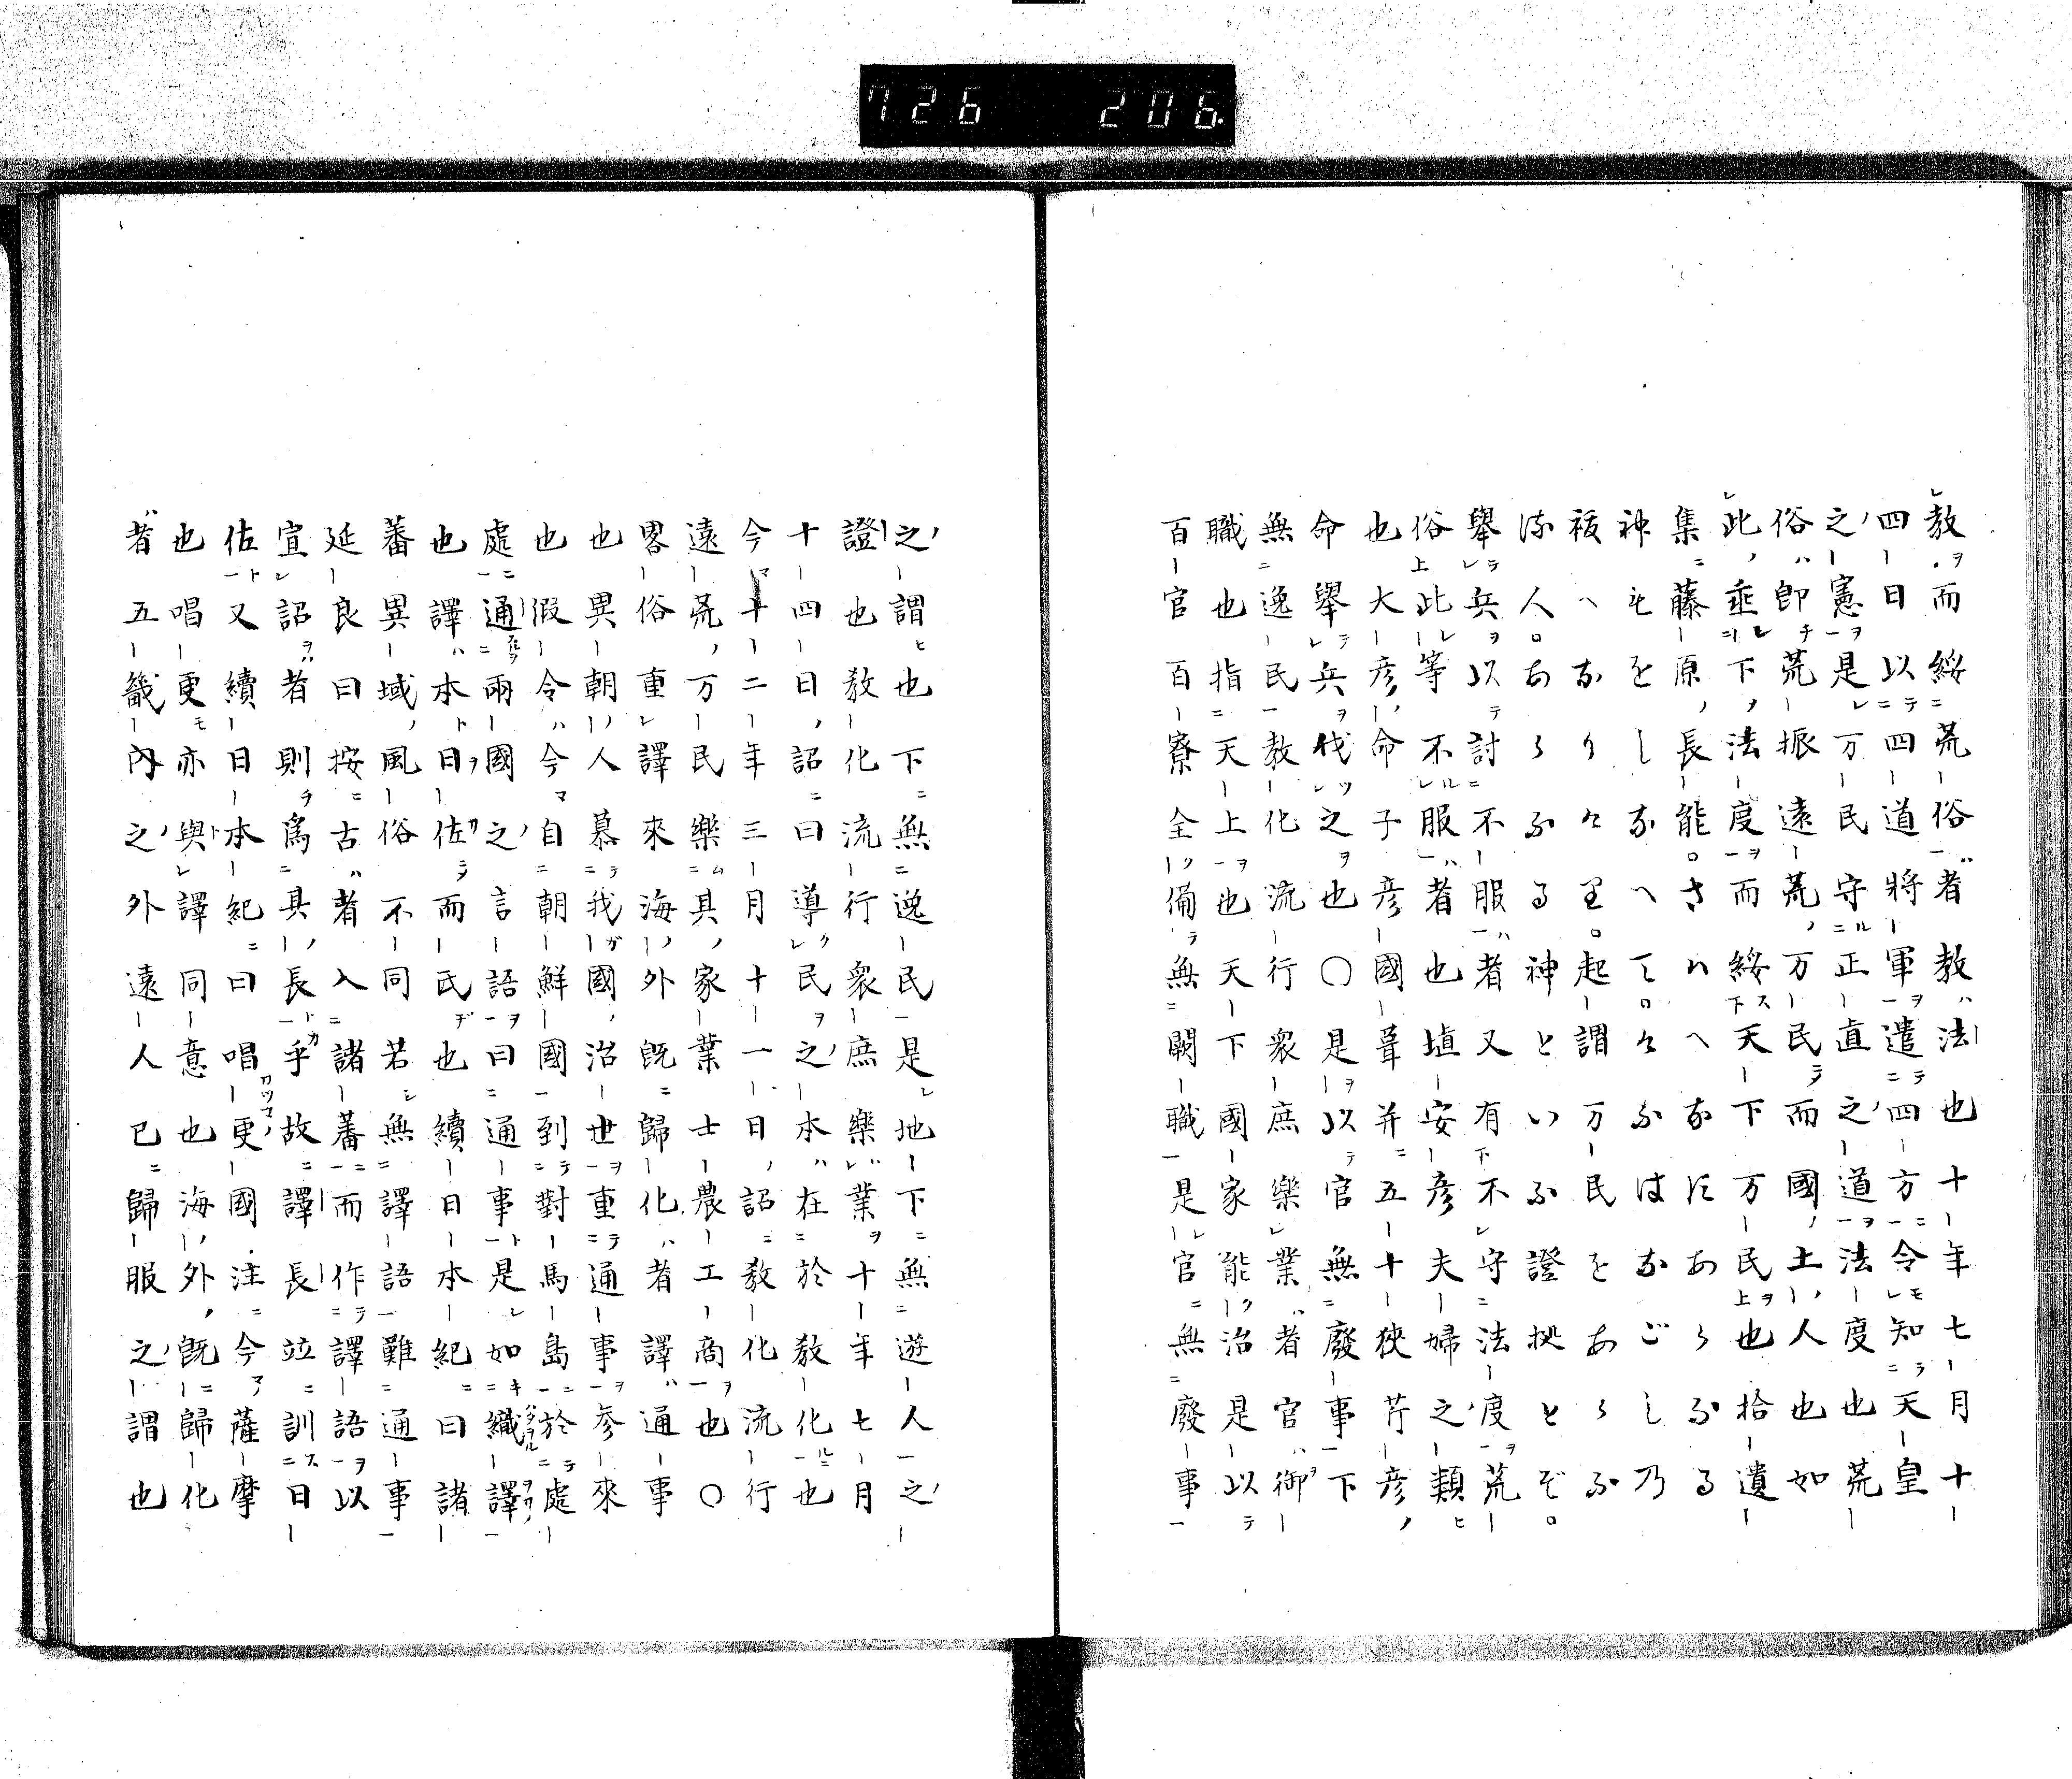 726 206
教而綏荒俗者教法也十年七月十
四日以四道將軍遣四方令知天皇
之憲是万民守正直之道法度也荒
俗即荒振遠荒万民而國土人也如
此垂下法度而綏天下万民也拾遺
集藤原長能さはへなにあらふる
神もをしなへてけふはなごしの
祓へなりけり起謂万民をあらふ
流人あらふる神といふ證拠とぞ
舉兵以討不服者又有不守法度荒
俗此等不服者也埴安彦夫婦之類
也大彦命子彦國葺并五十狹芹彦
命舉兵伐之也〇是以官無廢事下
無逸民教化流行衆庶樂業者官御
職也指天上也天下國家能治是以
百官百寮全備無闕職是官無廢事
之謂也下無逸民是地下無遊人之
證也教化流行衆庶樂業十年七月
十四日詔曰導民之本在於教化也
今十二年三月十一日詔教化流行
遠荒万民樂其家業士農工商也〇
畧俗重譯來海外既歸化者譯通事
也異朝人慕我國治世重通事參來
也假令今自朝鮮國到對馬島於處
處通兩國之言語曰通事是如織譯
也譯本曰佐而氏也續日本紀曰諸
蕃異域風俗不同若無譯語難通事
延良曰按古者入諸蕃而作譯語以
宣詔者則爲其長乎故譯長竝訓曰
佐又續日本紀曰唱更國注今薩摩
也唱更亦與譯同意也海外既歸化
者五畿內之外遠人已歸服之謂也